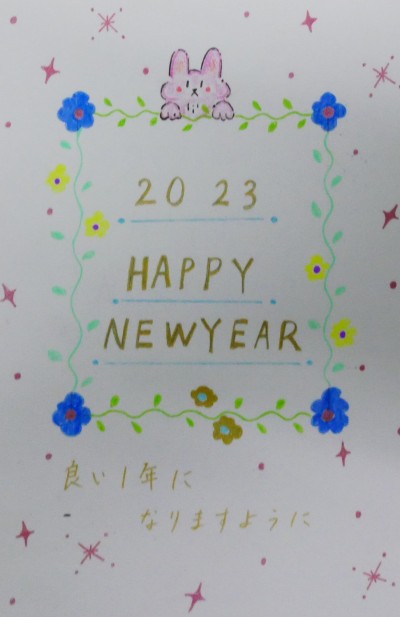 2023
HAPPY
NEWYEAR
良い1年に
なりますように